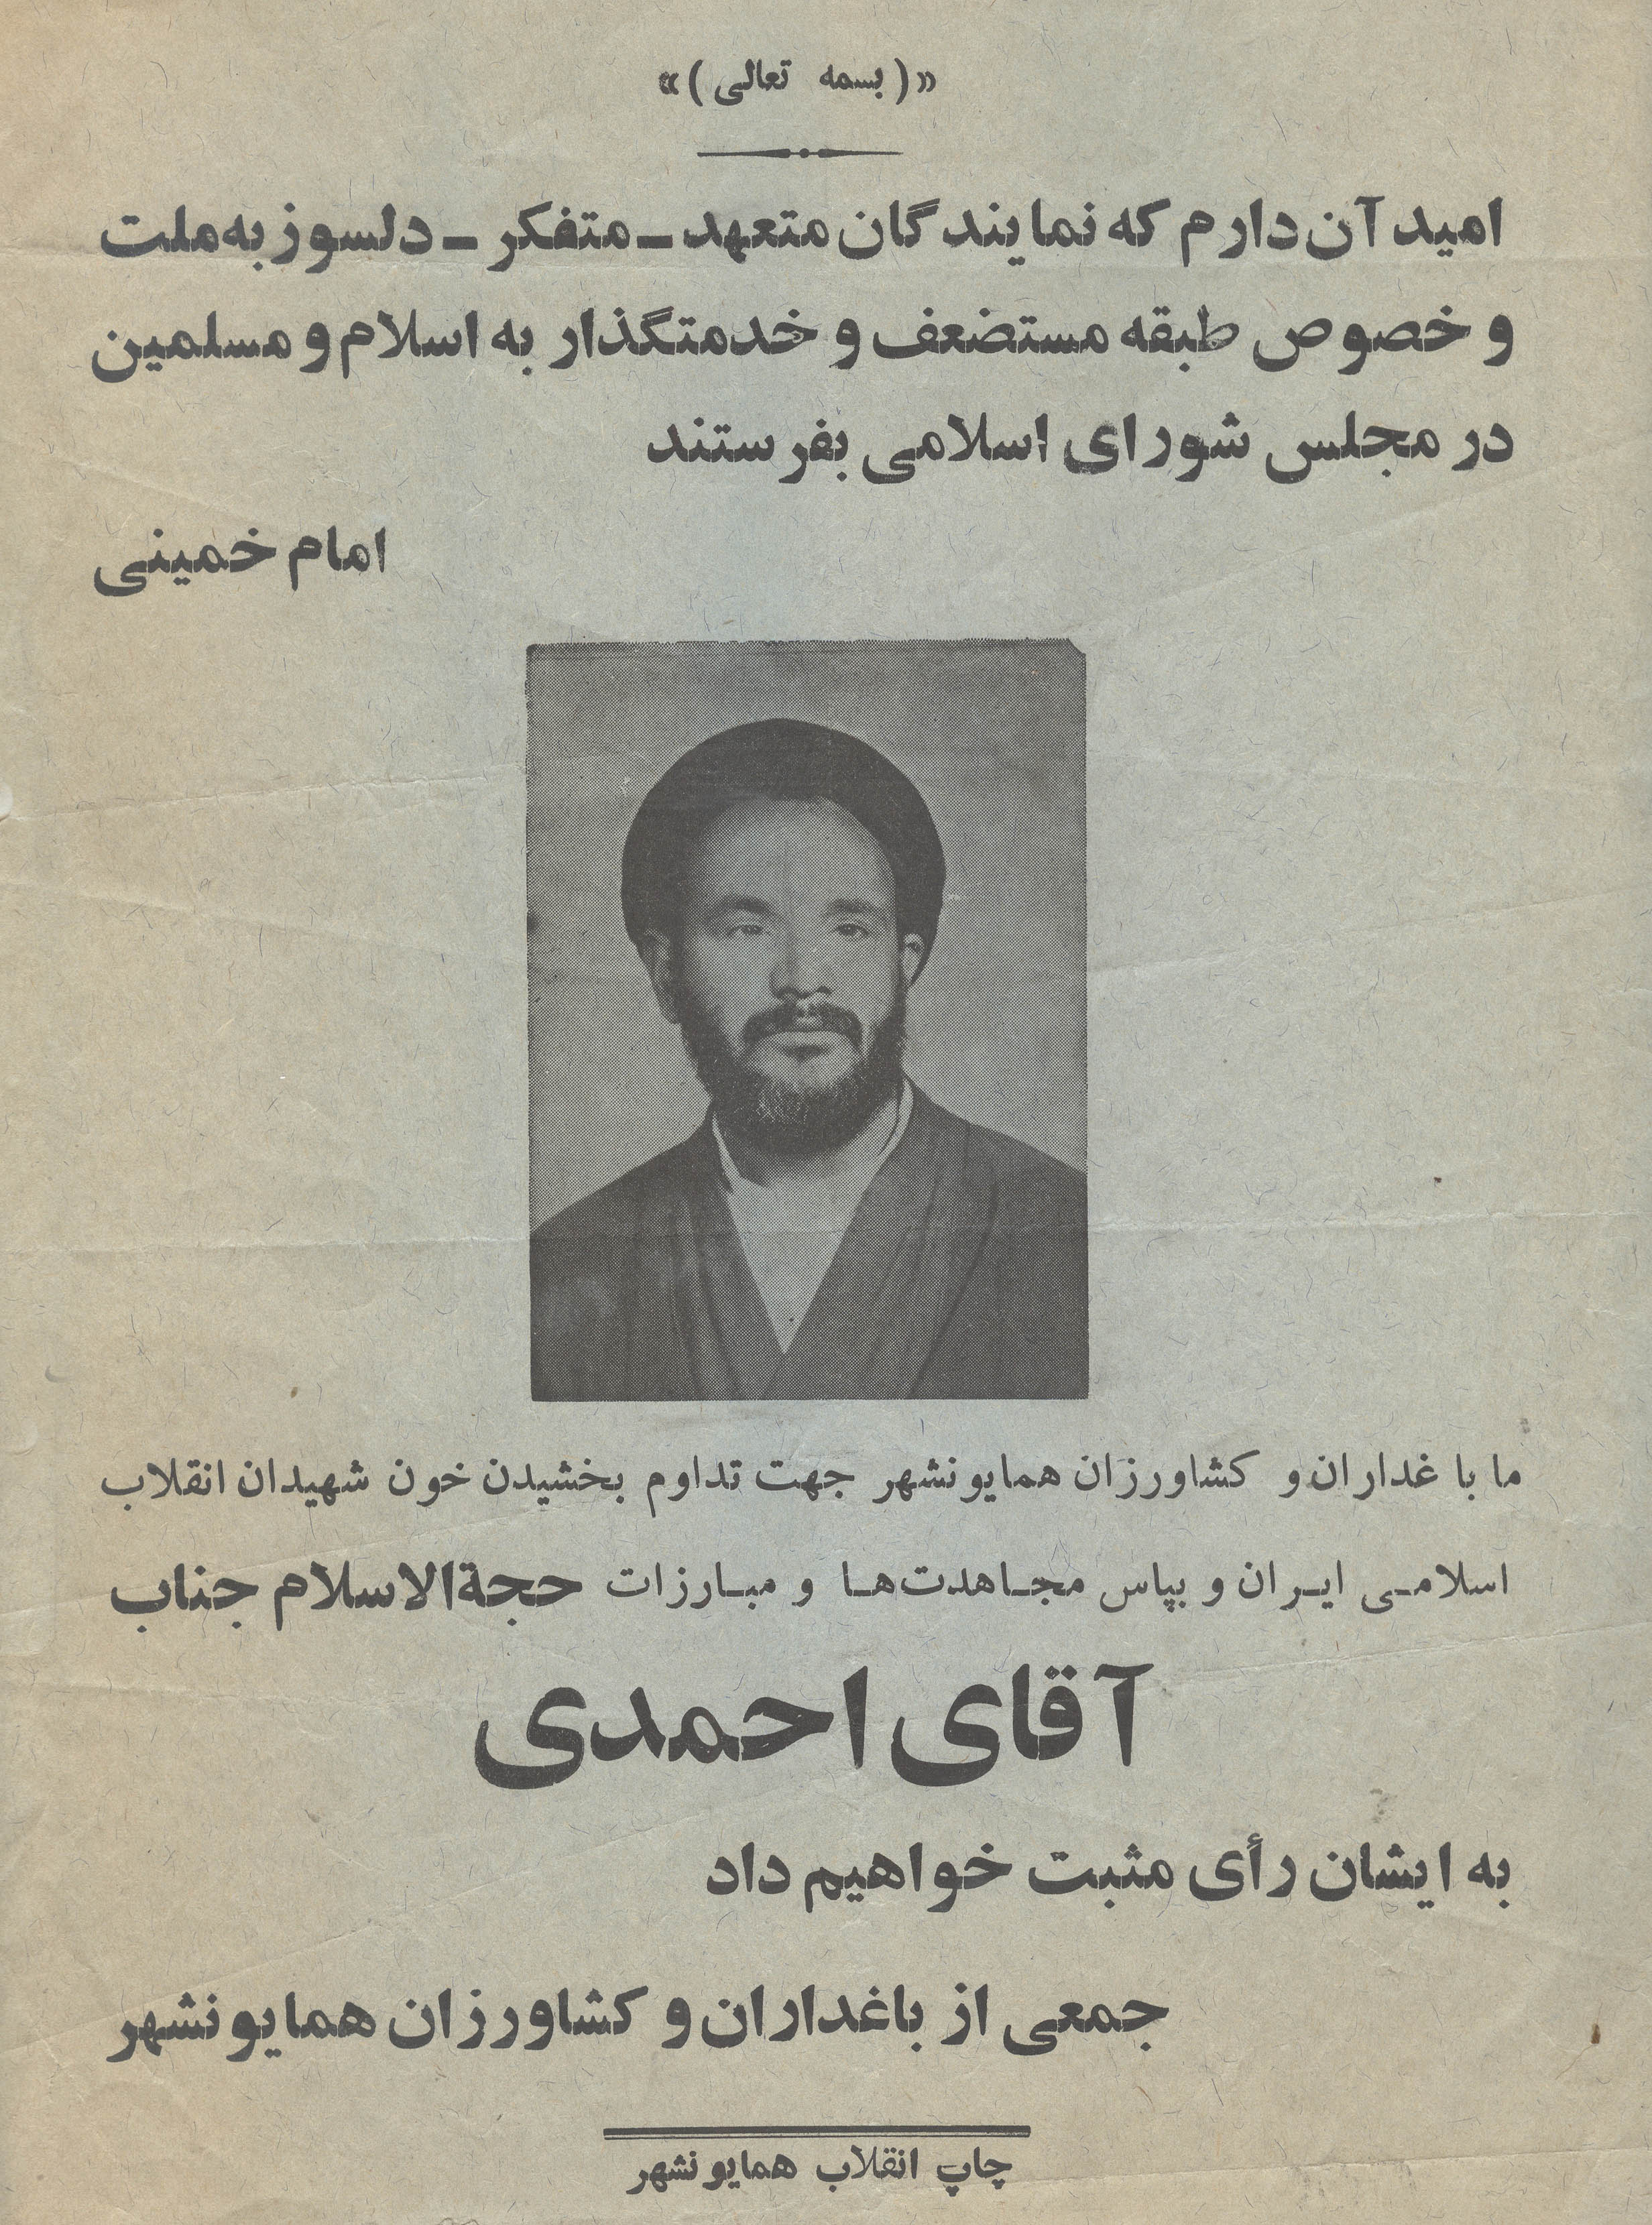 «( بسمه تعالی )»
امید آن دارم که نمایندگان متعهد ـ متفکر ـ دلسوز به ملت
و خصوص طبقه مستضعف و خدمتگذار به اسلام و مسلمین
در مجلس شورای اسلامی بفرستند
امام خمینی
ما باغداران و کشاورزان همایونشهر جهت تداوم بخشیدن خون شهیدان انقلاب
اسلامی ایران و بپاس مجاهدت‌ها و مبارزات حجةالاسلام جناب
آقای احمدی
به ایشان رأی مثبت خواهیم داد
جمعی از باغداران و کشاورزان همایونشهر
چاپ انقلاب همایونشهر